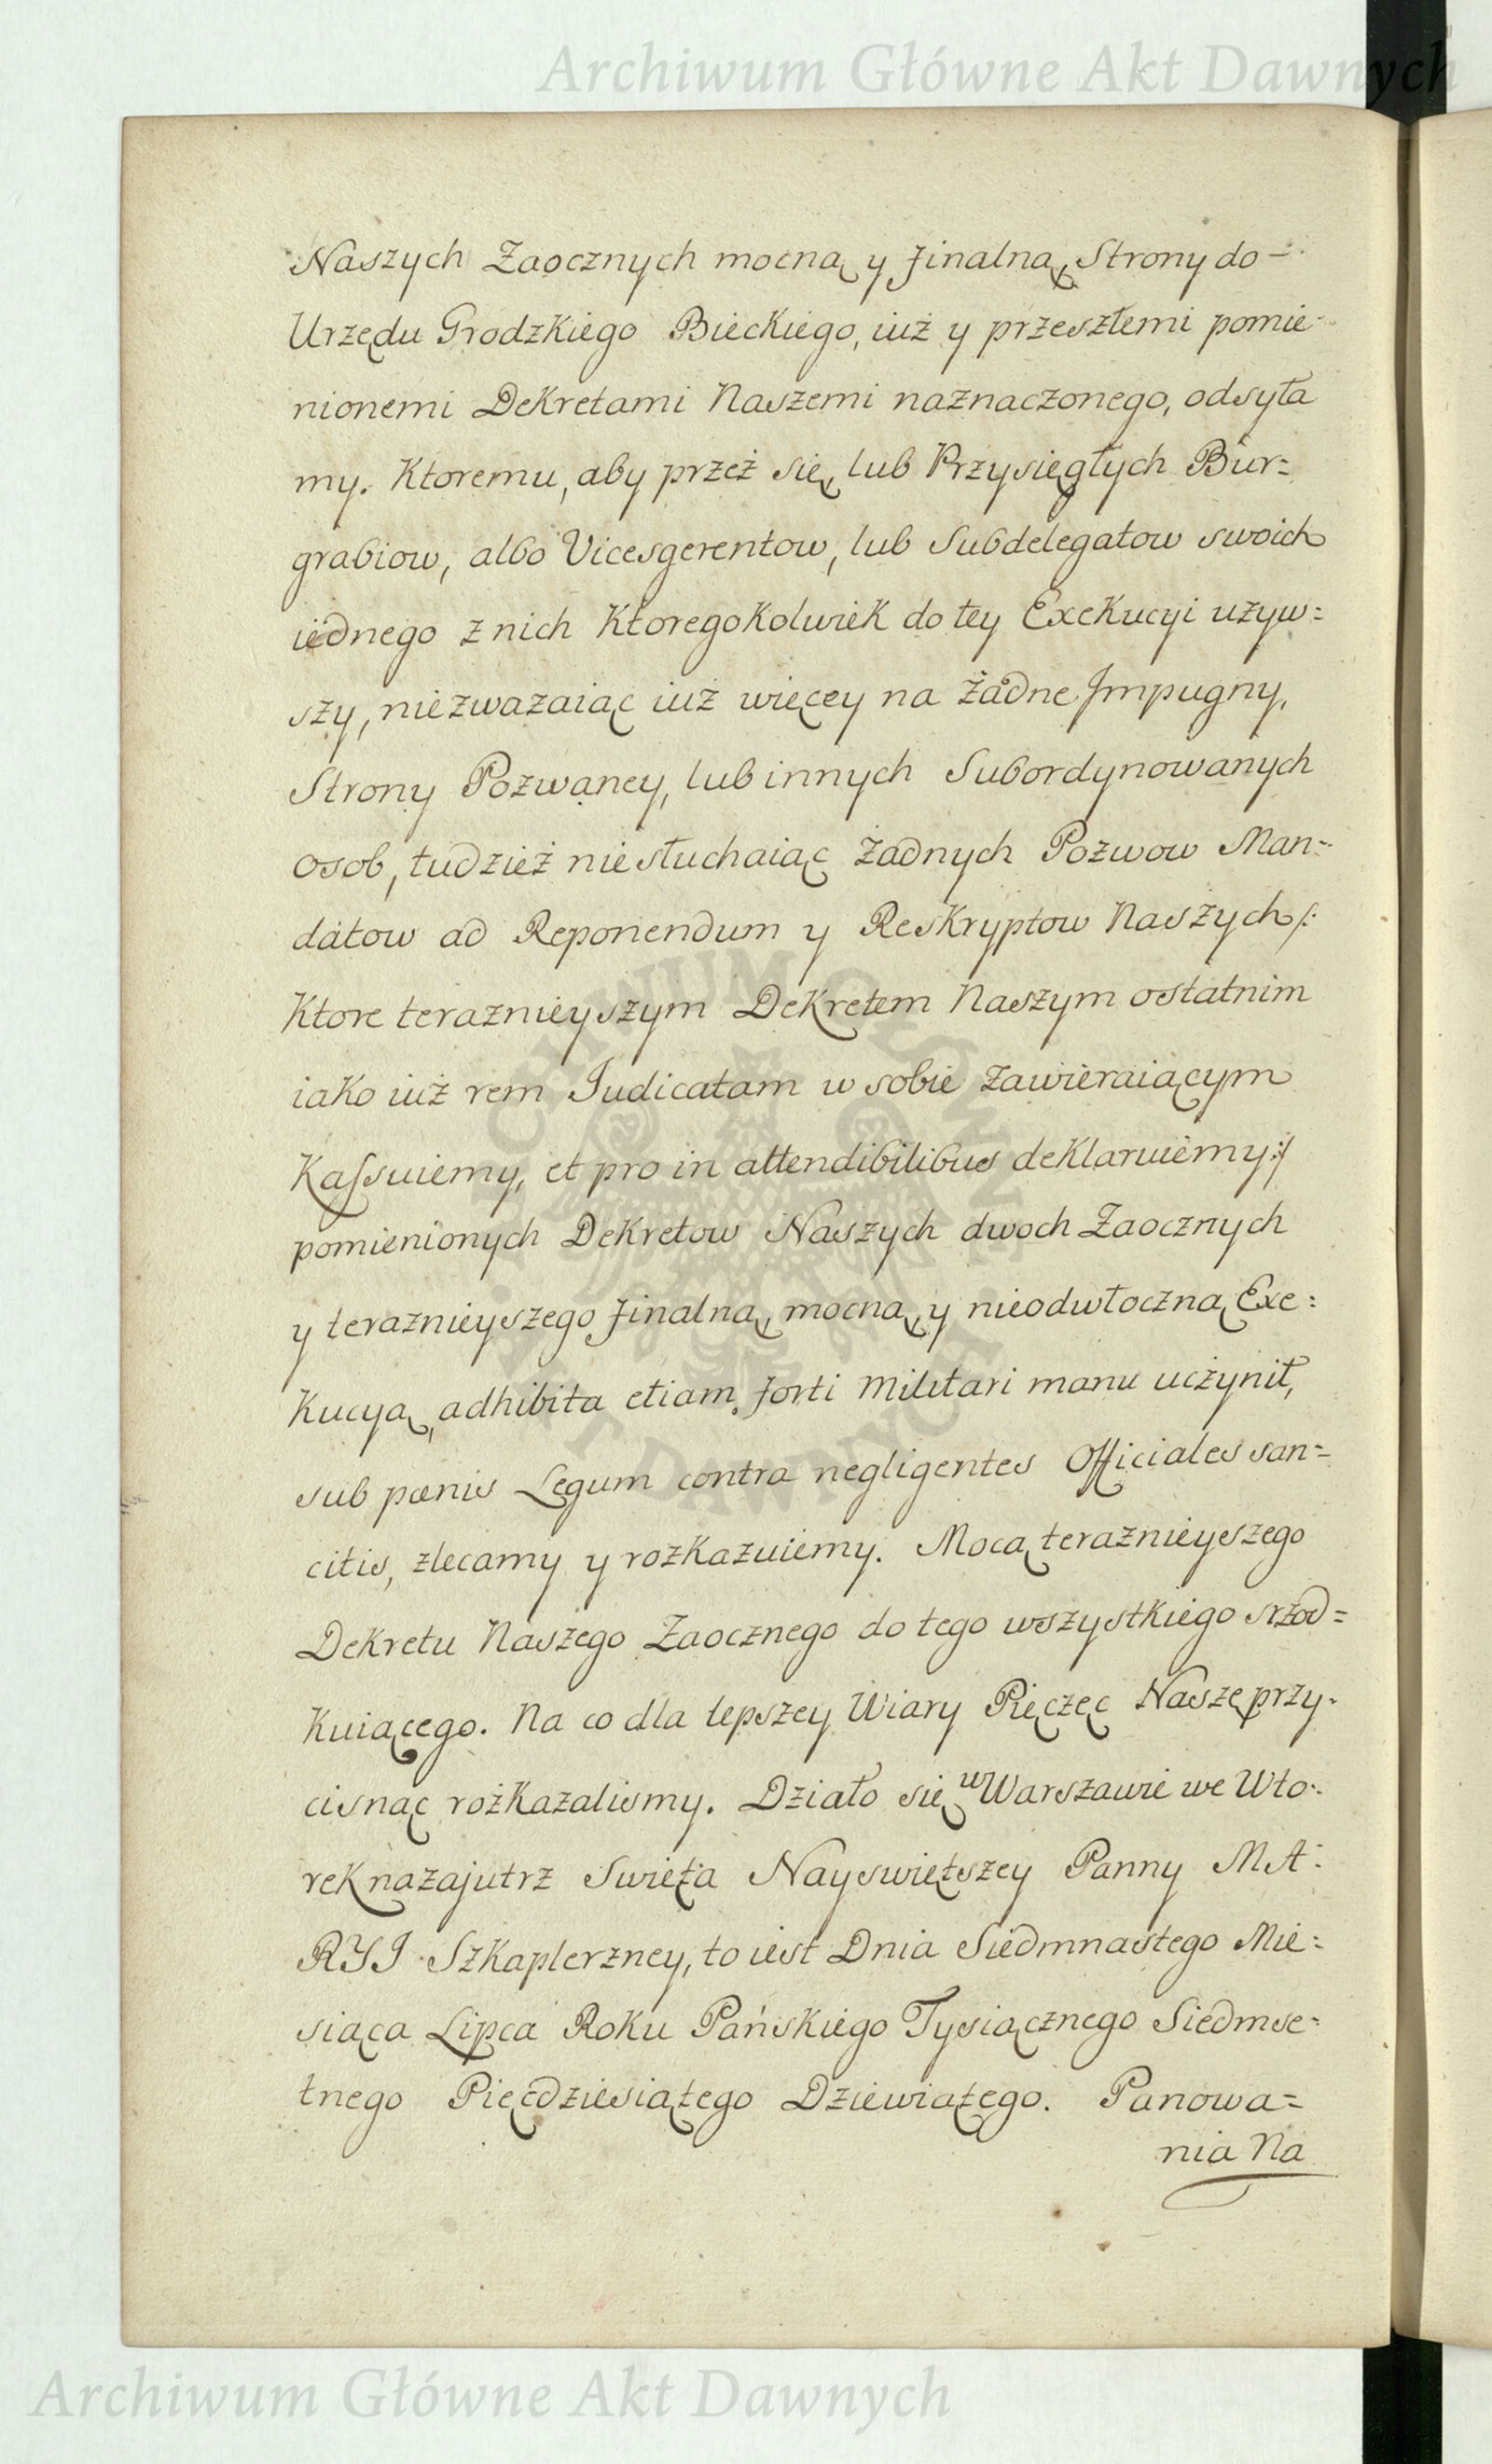 Archiwum Główne Akt Dawnych
Naszych Zaocznych mocną y finalną Strony do-
Urzędu Grodzkiego Bieckiego, iuż y przeszłemi pomie-
nionemi Dekretami Naszemi naznaczonego, odsyła
my. Ktoremu, aby przeż się, lub Przysięgłych Bur=
grabiow, albo Vicesgerentow, lub Subdelegatow swoich
iednego z nich Ktoregokolwiek do tey Exekucyi uzyw=
szy, niezwazaiąc iuż więcey na żadne Impugny,
Strony Pozwaney, lub innych Subordynowanych
osob, tudzież niesłuchaiąc żadnych Pozwow Man=
datow ad Reponendum y Reskryptow Naszych/:
Ktore teraznieyszym Dekretem Naszym ostatnim
iako iuż rem Iudicatam w sobie zawieraiącym
Kassuiemy, et pro in attendibilibus deklaruiemy:/
pomienionych Dekretow Naszych dwoch Zaocznych
y teraznieyszego finalną, mocną, y nieodwłoczną Exe=
Kucyą, adhibita etiam forti Militari manu uczynił,
sub pœnis Legum contra negligentes Officiales san=
citis, zlecamy y rozkazuiemy. Mocą teraznieyszego
Dekretu Naszego Zaocznego do tego wszystkiego srzod=
Kuiącego. Na co dla lepszey Wiary Pięczęc Naszę przy-
cisnąc rozkazalismy. Działo się w Warszawie we Wto-
rek nazajutrz Swięta Nayswiętszey Panny MA-
RYI Szkaplerzney, to iest Dnia Siedmnastego Mie=
siąca Lipca Roku Pańskiego Tysiącznego Siedmse=
tnego Pięcdziesiątego Dziewiątego. Panowa=
nia Na
Archiwum Główne Akt Dawnych